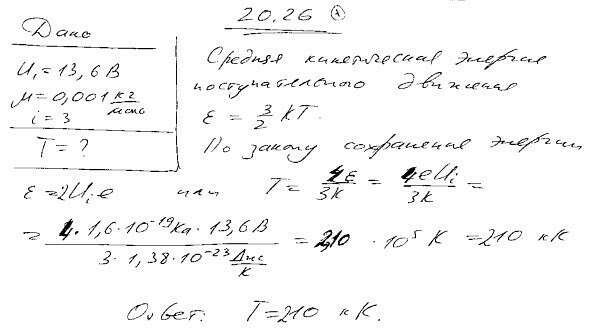 20.26 А
Дано
U₁=13,6 В
μ=0,001 кг/моль
i=3
T=?
Средняя кинетическая энергия
поступательного движения
ε = 3/2 kT.
По закону сохранения энергии
ε=2Uᵢe или T= 4ε/3k = 4eUᵢ/3k =
= 4·1,6·10⁻¹⁹Кл·13,6В / 3·1,38·10⁻²³ Дж/К = 2,10 · 10⁵ К = 210 кК
Ответ: T=210 кК.